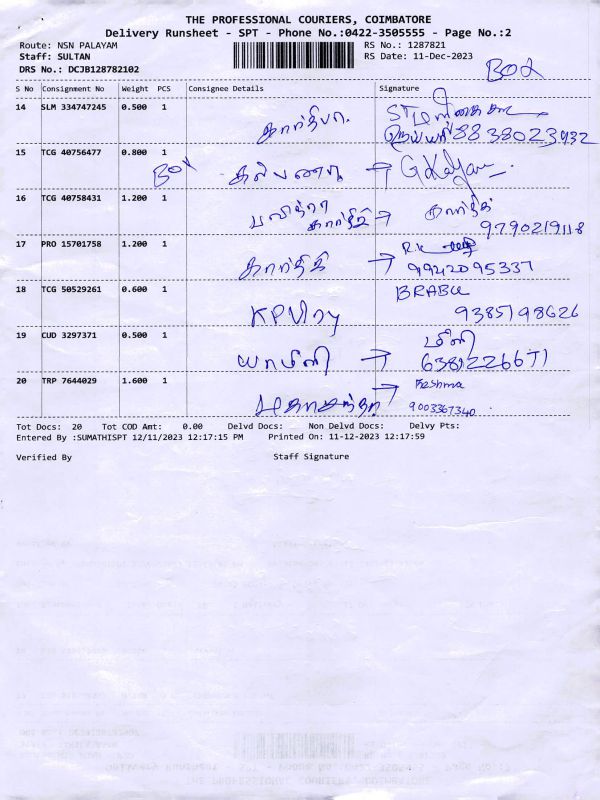 THE PROFESSIONAL COURIERS, COIMBATORE
Delivery Runsheet - SPT - Phone No.:0422-3505555 - Page No.:2
Route: NSN PALAYAM
RS No.: 1287821
Staff: SULTAN
RS Date: 11-Dec-2023
DRS No.: DCJB128782102
BOX
S No Consignment No Weight PCS Consignee Details Signature
14 SLM 334747245 0.500 1
88 38023932
15 TCG 40756477 0.800 1
BOX கல்பனா → G Kalyani
16 TCG 40758431 1.200 1
பவித்ரா கார்த்திக் → கார்த்திக்
9790219118
17 PRO 15701758 1.200 1
கார்த்திகி → R.K
9942095337
18 TCG 50529261 0.600 1
BRABU
KPபிரபு 9385198626
19 CUD 3297371 0.500 1
யாமினி → மீனி
6381226671
20 TRP 7644029 1.600 1
→ Reshma
9003367340
Tot Docs: 20 Tot COD Amt: 0.00 Delvd Docs: Non Delvd Docs: Delvy Pts:
Entered By :SUMATHISPT 12/11/2023 12:17:15 PM Printed On: 11-12-2023 12:17:59
Verified By Staff Signature